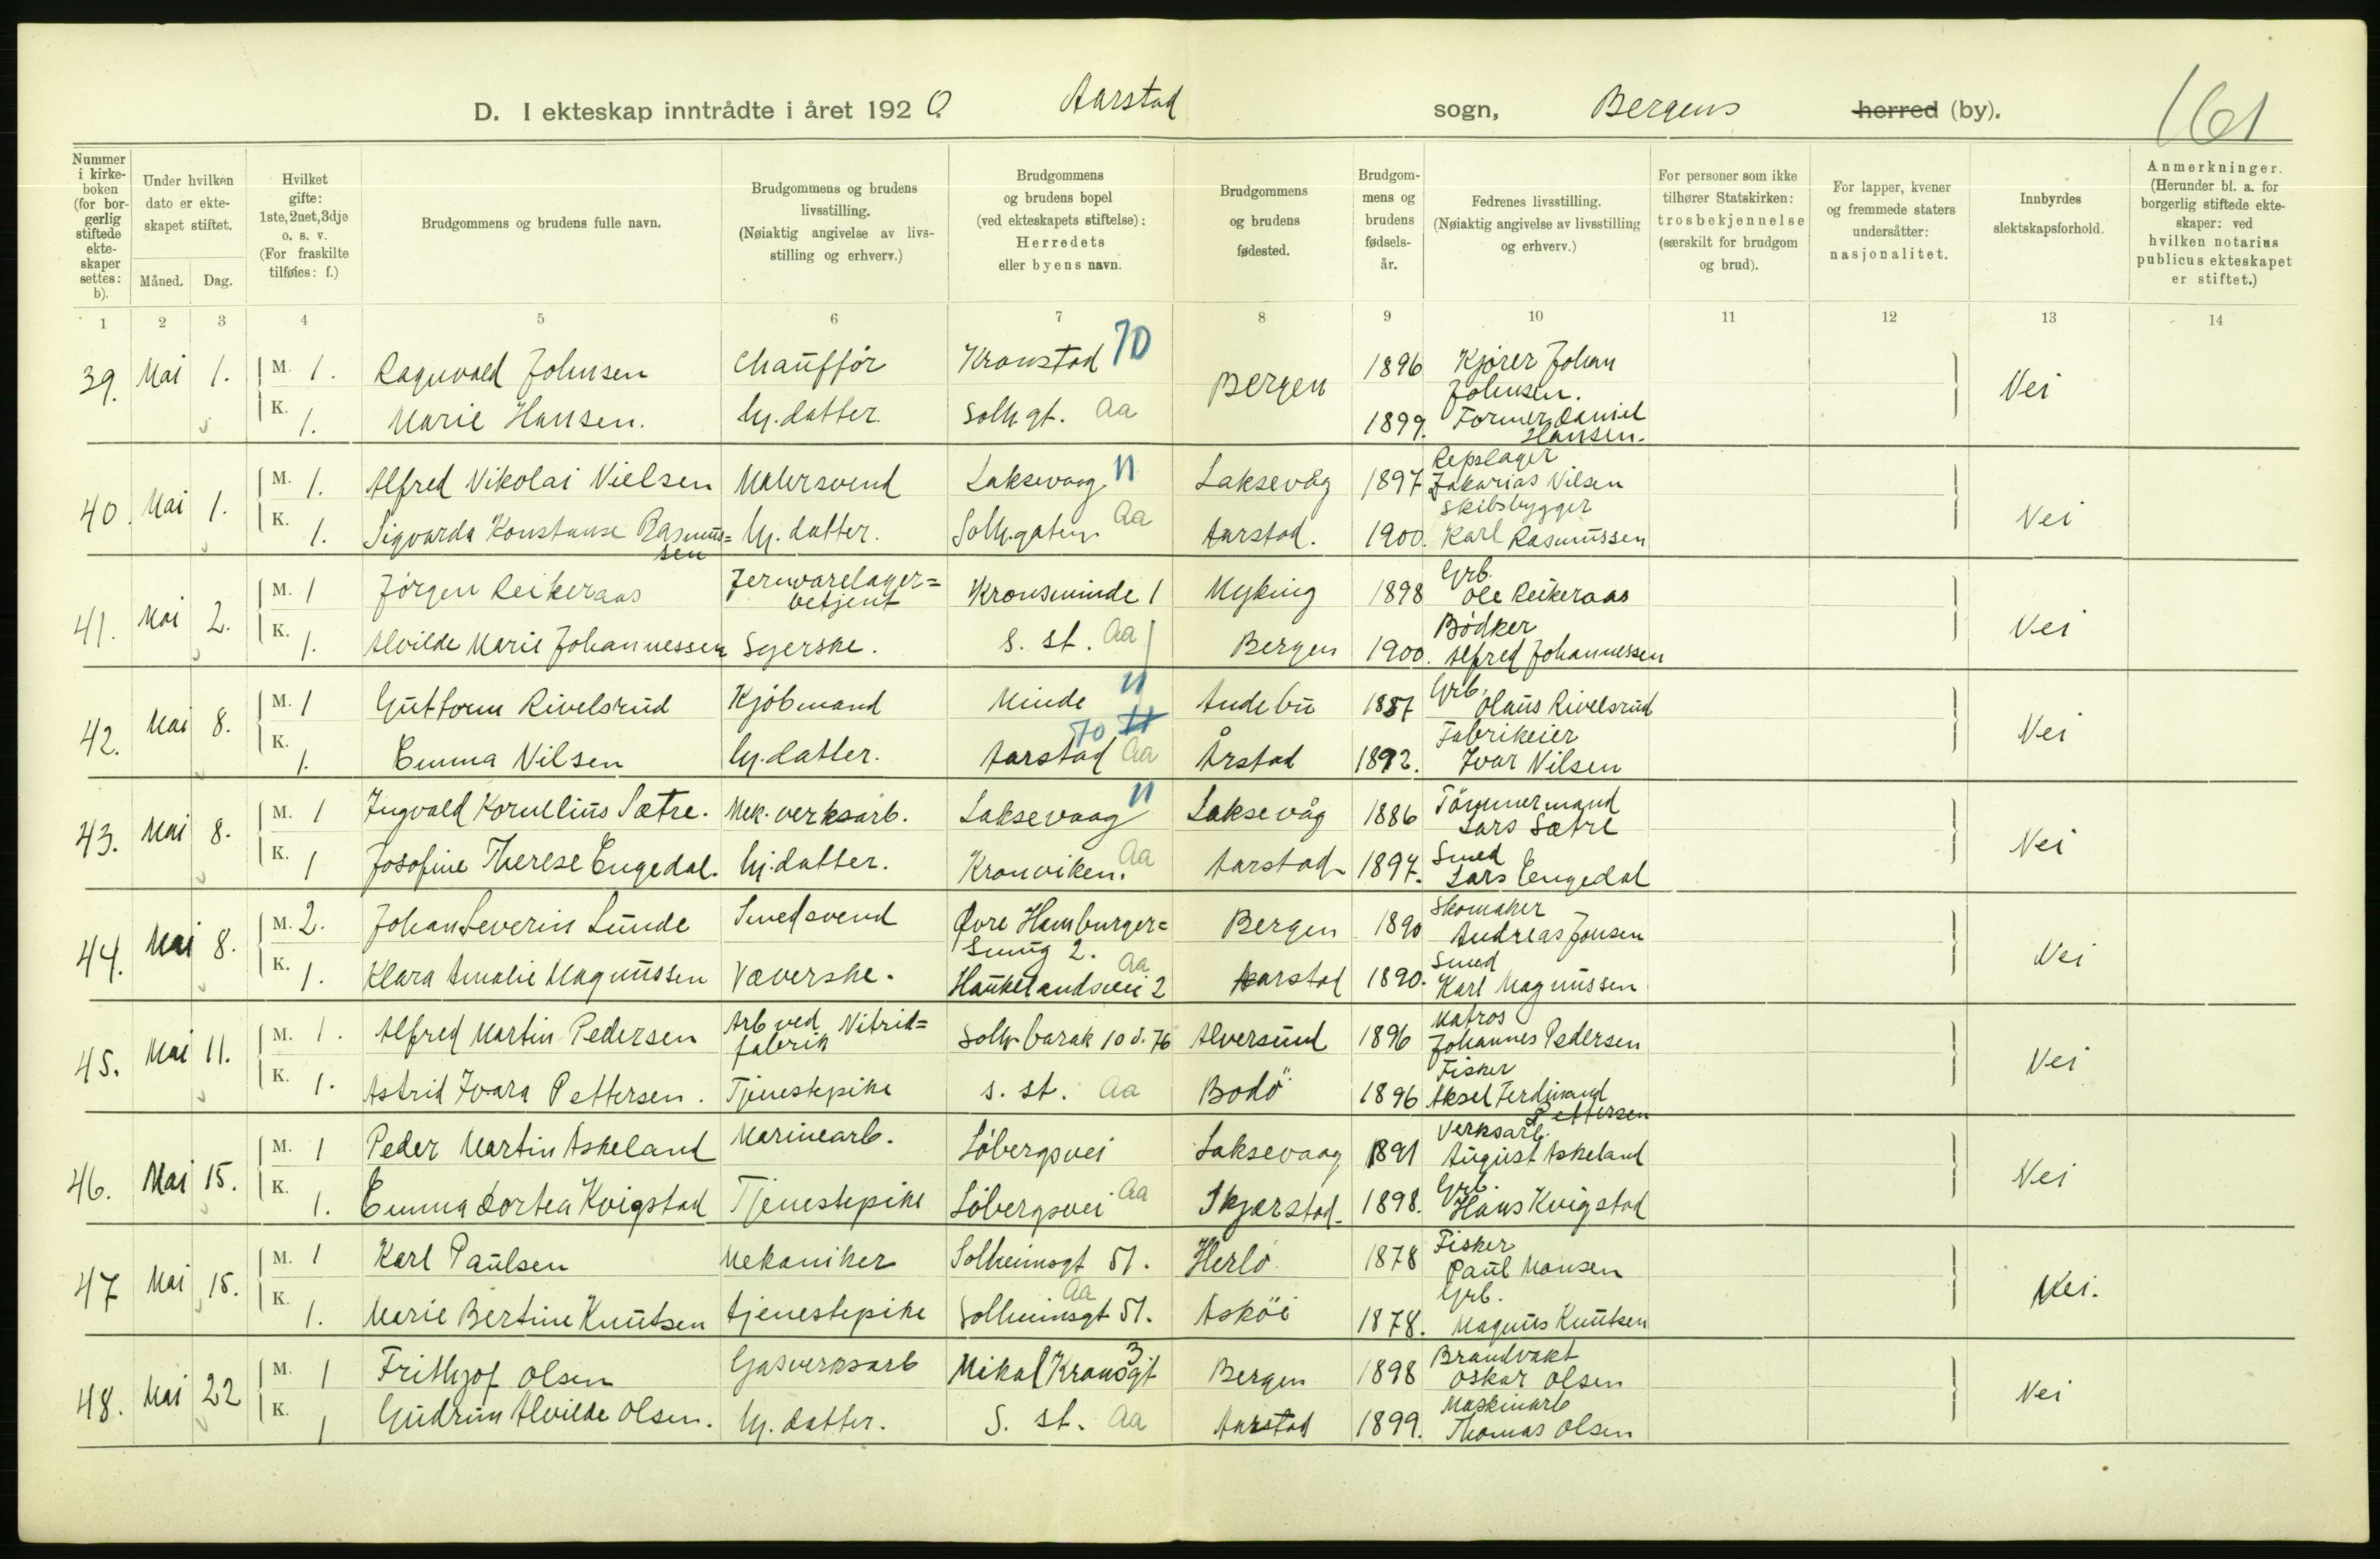 D. I ekteskap inntrådte i året 1920. Aarstad sogn, Bergens herred (by). 161
Nummer i kirkeboken (for borgerlig stiftede ekteskaper settes: b).
Under hvilken dato er ekteskapet stiftet. Måned. Dag.
Hvilket gifte: 1ste, 2net, 3dje o. s. v. (For fraskilte tilføies: f.)
Brudgommens og brudens fulle navn.
Brudgommens og brudens livsstilling. (Nøiaktig angivelse av livsstilling og erhverv.)
Brudgommens og brudens bopel (ved ekteskapets stiftelse): Herredets eller byens navn.
Brudgommens og brudens fødested.
Brudgommens og brudens fødselsår.
Fedrenes livsstilling. (Nøiaktig angivelse av livsstilling og erhverv.)
For personer som ikke tilhører Statskirken: trosbekjennelse (særskilt for brudgom og brud).
For lapper, kvener og fremmede staters undersåtter: nasjonalitet.
Innbyrdes slektskapsforhold.
Anmerkninger. (Herunder bl. a. for borgerlig stiftede ekteskaper: ved hvilken notarius publicus ekteskapet er stiftet.)
1 2 3 4 5 6 7 8 9 10 11 12 13 14
39. Mai 1. M. 1. Ragnvald Johnsen Chauffør Kronstad 70 Bergen 1896 Kjører Johan Johnsen. Nei
K. 1. Marie Hansen. Hj. datter. Solh. gt. Aa 1899. Former Daniel Hansen.
40. Mai 1. M. 1. Alfred Nikolai Nielsen Malersvend Laksevaag 11 Laksevåg 1897 Repslager Zakarias Nilsen Nei
K. 1. Sigvarda Konstanse Rasmussen Hj. datter. Solh.gaten Aa Aarstad. 1900. Skibsbygger Karl Rasmussen
41. Mai 2. M. 1 Jørgen Reikeraas Jernvarelagerbetjent Kronsminde 1 Myking 1898 Grb. Ole Reikeraas Nei
K. 1. Alvilde Marie Johannessen Syerske. s. st. Aa Bergen 1900. Bødker Alfred Johannessen
42. Mai 8. M. 1 Guttorm Rivelsrud Kjøbmand Minde 11 Andebu 1887 Grb. Olaus Rivelsrud Nei
K. 1. Emma Nilsen Hj. datter. Aarstad 70 Aa Årstad 1892. Fabrikeier Ivar Nilsen
43. Mai 8. M. 1 Ingvald Kornelius Sætre. Mek. verksarb. Laksevaag 11 Laksevåg 1886 Tømmermand Lars Sætre Nei
K. 1 Josofine Therese Engedal. Hj. datter. Kronviken. Aa Aarstad 1897. Smed Lars Engedal
44. Mai 8. M. 2. Johan Severin Lunde Smedsvend Øvre Hamburgersmug 2. Bergen 1890 Skomaker Andreas Jonsen Nei
K. 1. Klara Amalie Magnussen Væverske. Haukelandsvei 2 Aa Aarstad 1890. Smed Karl Magnussen
45. Mai 11. M. 1. Alfred Martin Pedersen Arb ved Nitridfabrik Solh. barak 10 d. 76 Alversund 1896 Matros Johannes Pedersen Nei
K. 1. Astrid Ivara Pettersen. Tjenestepike s. st. Aa Bodö 1896 Fisker Aksel Ferdinand Pettersen
46. Mai 15. M. 1 Peder Martin Askeland Marinearb. Löbergsvei Laksevaag 1891 Verksarb. August Askeland Nei
K. 1. Emma Dortea Kvigstad Tjenestepike Löbergsvei Aa Skjærstad 1898. Grb. Hans Kvigstad
47 Mai 15. M. 1 Karl Paulsen Mekaniker Solheimsgt 51. Herlö 1878 Fisker Paul Monsen Nei.
K. 1. Marie Bertine Knutsen tjenestepike Solheimsgt 51. Aa Asköi 1878. Grb. Magnus Knutsen
48. Mai 22 M. 1 Frithjof Olsen Gasverksarb Mikal Kronsgt 3 Bergen 1898 Brandvakt Oskar Olsen Nei
K. 1 Gudrun Alvilde Olsen. Hj. datter. S. st. Aa Aarstad 1899. Maskinarb Thomas Olsen